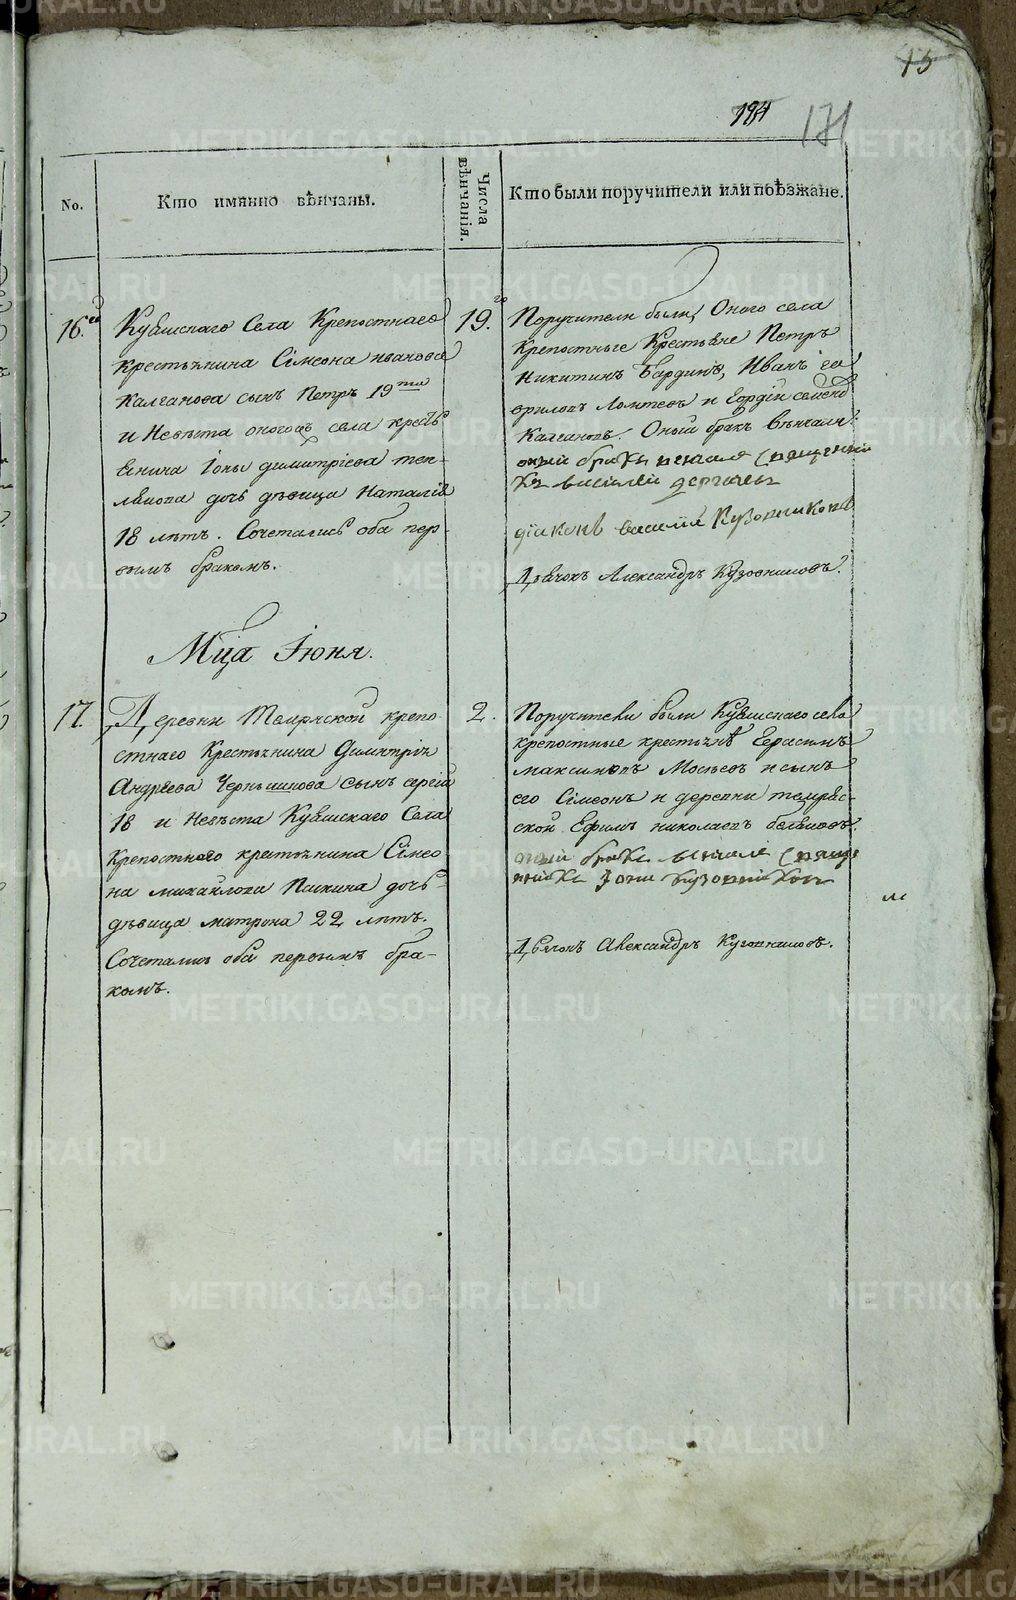 15
194
171
No.
Кто имянно вѣнчаны.
Числа вѣнчанія.
Кто были поручители или поѣзжане.
16.го
Кувшскаго Села Крепостнаго
крестьянина Сімеона иванова
Калганова сынъ Петръ 19
и Невѣста оногожъ села кресть
янина Іоны димитріева теп-
лякова дочь дѣвица Наталія
18 лѣтъ. Сочетались оба пер-
вымъ бракомъ.
19.го
Поручители были, Оного села
крепостные Крестьяне Петръ
Никитинъ Бардинъ, Иванъ га
вриловъ Ломтевъ и Семено
Калгановъ. Оный бракъ вѣнчали:
оный бракъ венчале Священни
къ василей дергачевъ
діаконъ василій Кузовниковъ
Дьячокъ Александръ Кузовниковъ.
Мца Іюня.
17.
Деревни Темрясской крепо-
стнаго Крестьянина Димитрія
Андреева Чернышикова сынъ сергій
18 и Невѣста Кувшскаго Села
Крепостнаго крестьянина Сімео
на михайлова Паикина дочь
дѣвица матрона 22 лѣтъ.
Сочетались оба первымъ бра-
комъ.
2.
Поручители были Кувшскаго села
крепостные крестьянѣ Герасимъ
максимовъ Мосѣевъ и сынъ
его Сімеонъ и деревни темряс-
ской Ефимъ николаевъ
оный бракъ венчале Свяще
нникъ Іоан Кузовниковъ
Дьячокъ Александръ Кузовниковъ.
METRIKI.GASO-URAL.RU